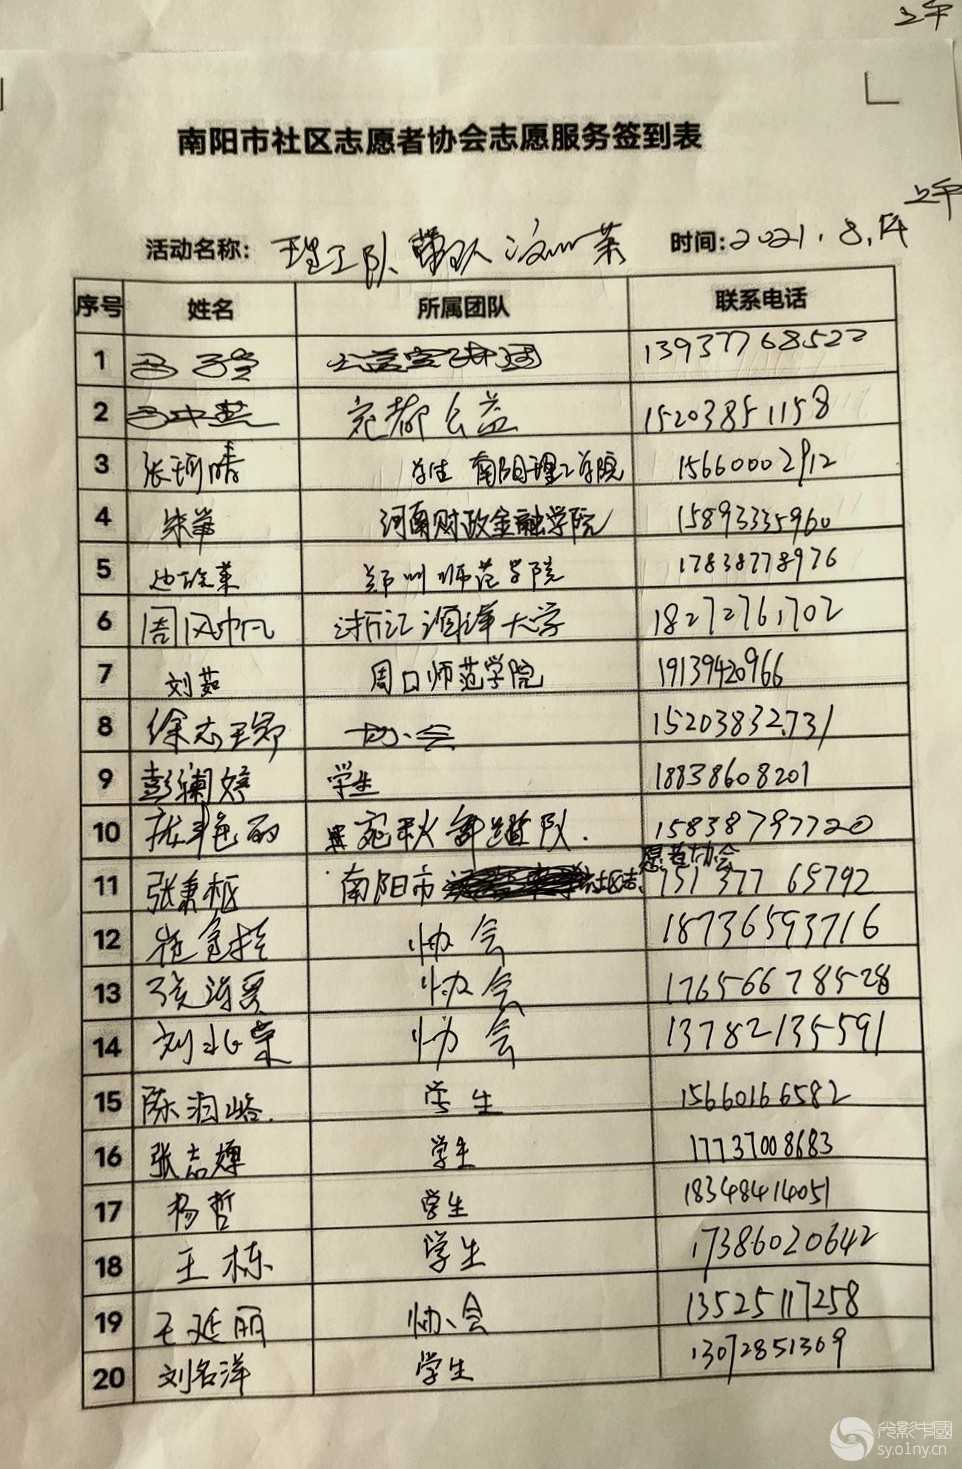 上午
南阳市社区志愿者协会志愿服务签到表
上午
活动名称： 理工队 带队 时间：2021.8.14
序号 姓名 所属团队 联系电话
1 13937768522
2 宛都公益 15203851158
3 张珂晴 学生 南阳理工学院 15660002912
4 朱华 河南财政金融学院 15893335960
5 郑州师范学院 17838778976
6 周风帆 浙江海洋大学 18272761702
7 刘茹 周口师范学院 19139420966
8 徐志 协会 15203832731
9 彭澜婷 学生 18838608201
10 宛秋 队. 15838797720
愿者协会
11 张秉枢 南阳市 社区志 15137765792
12 协会 18736593716
13 协会 17656678528
14 刘北荣 协会 13782135591
15 陈润峪. 学生 15660166582
16 张志煇 学生 17737008683
17 杨哲 学生 18348414051
18 王栋 学生 17386020642
19 王延丽 协会 13525117258
20 刘名洋 学生 13072851309
光影中國
sy.o1ny.cn